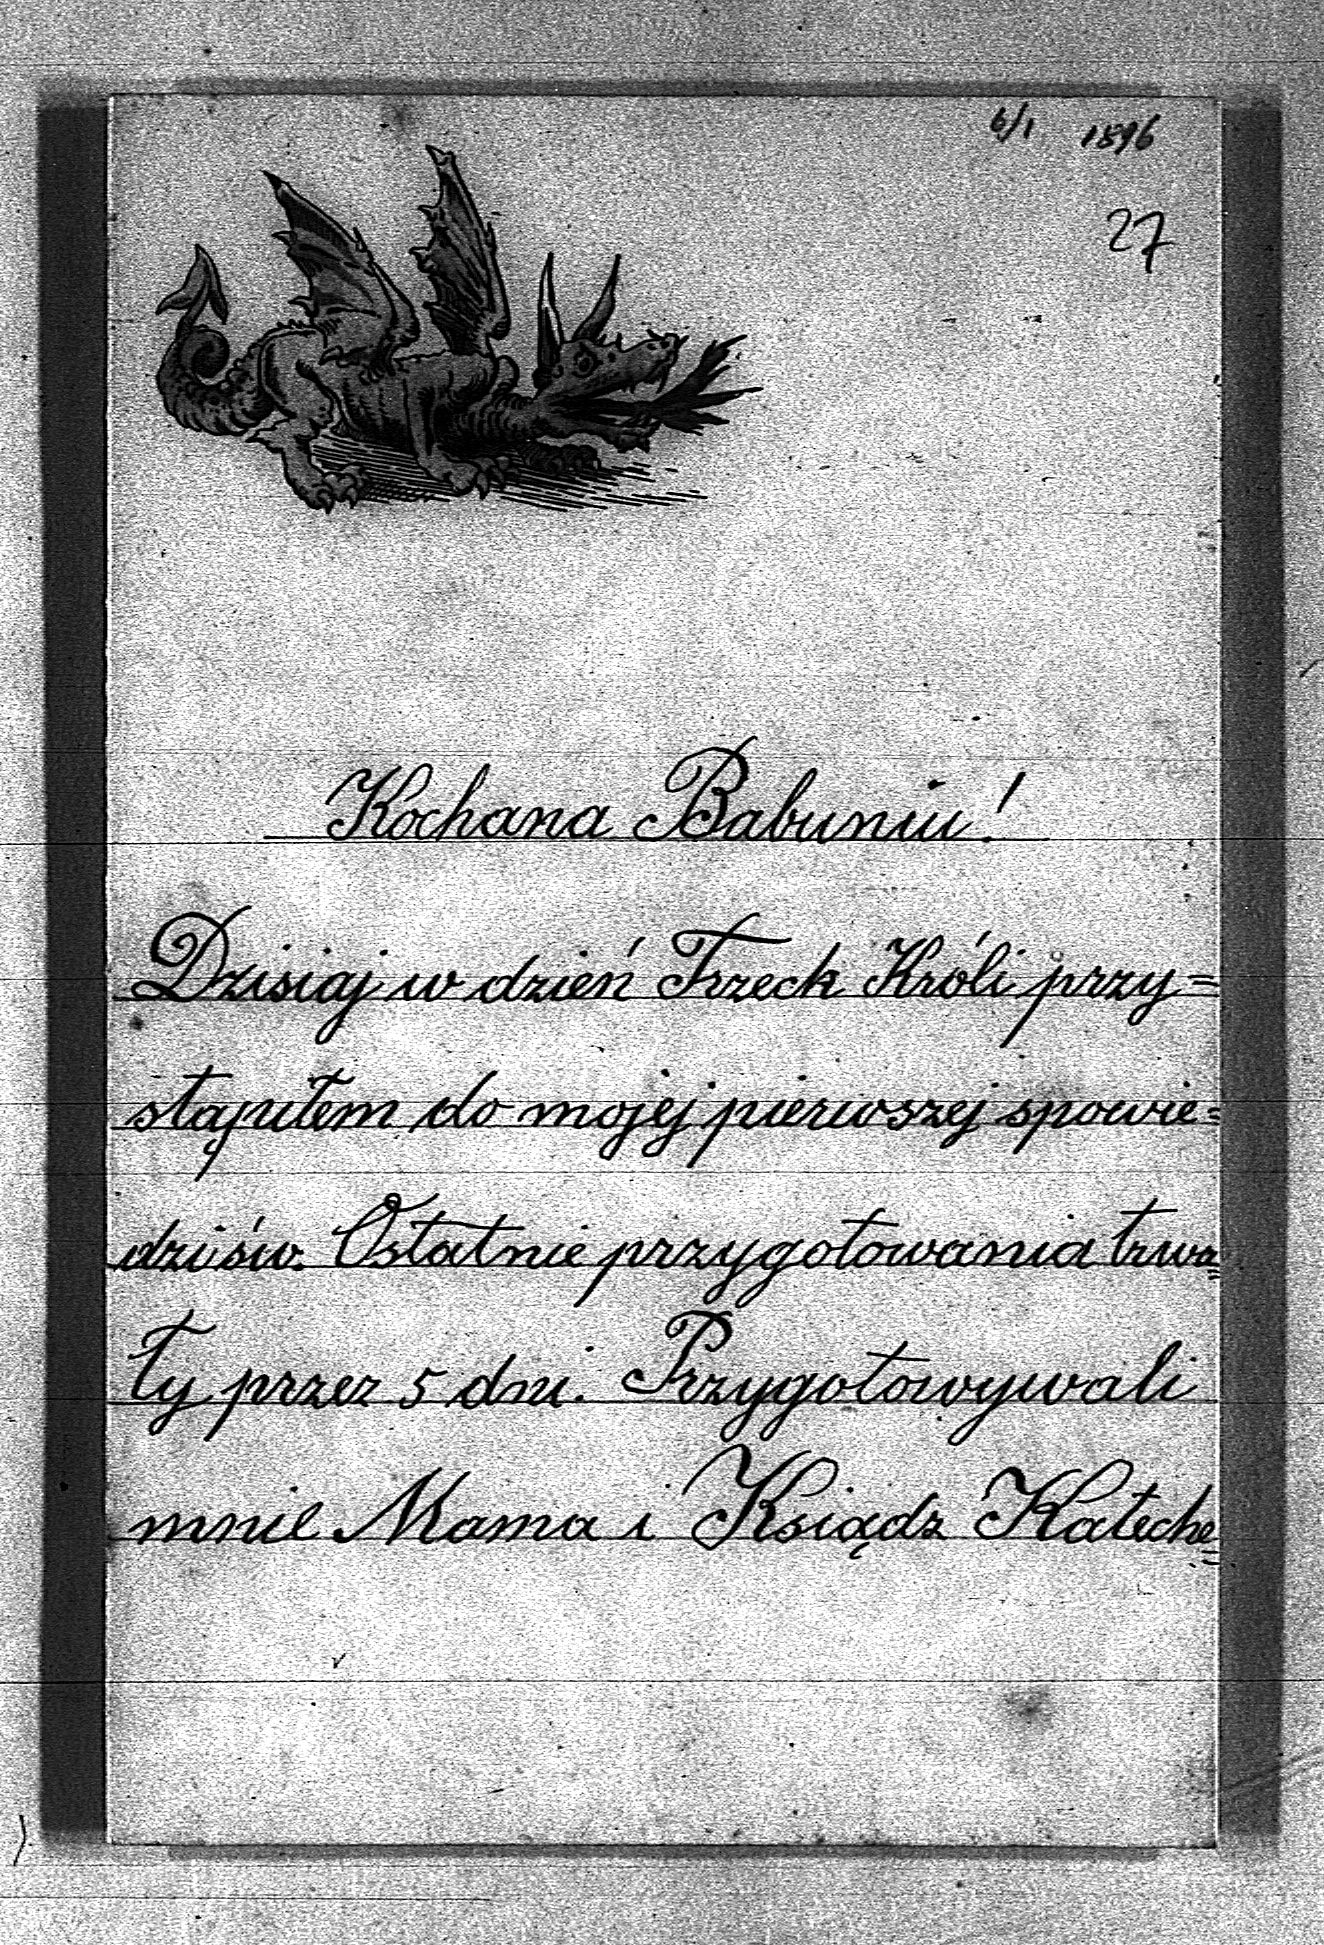 6/1 1896
27
Kochana Babuniu!
Dzisiaj w dzień Trzech Króli przy=
stąpiłem do mojej pierwszej spowie=
dzi św. Ostatnie przygotowania trwa=
ły przez 5 dni. Przygotowywali
mnie Mama i Ksiądz Kateche=